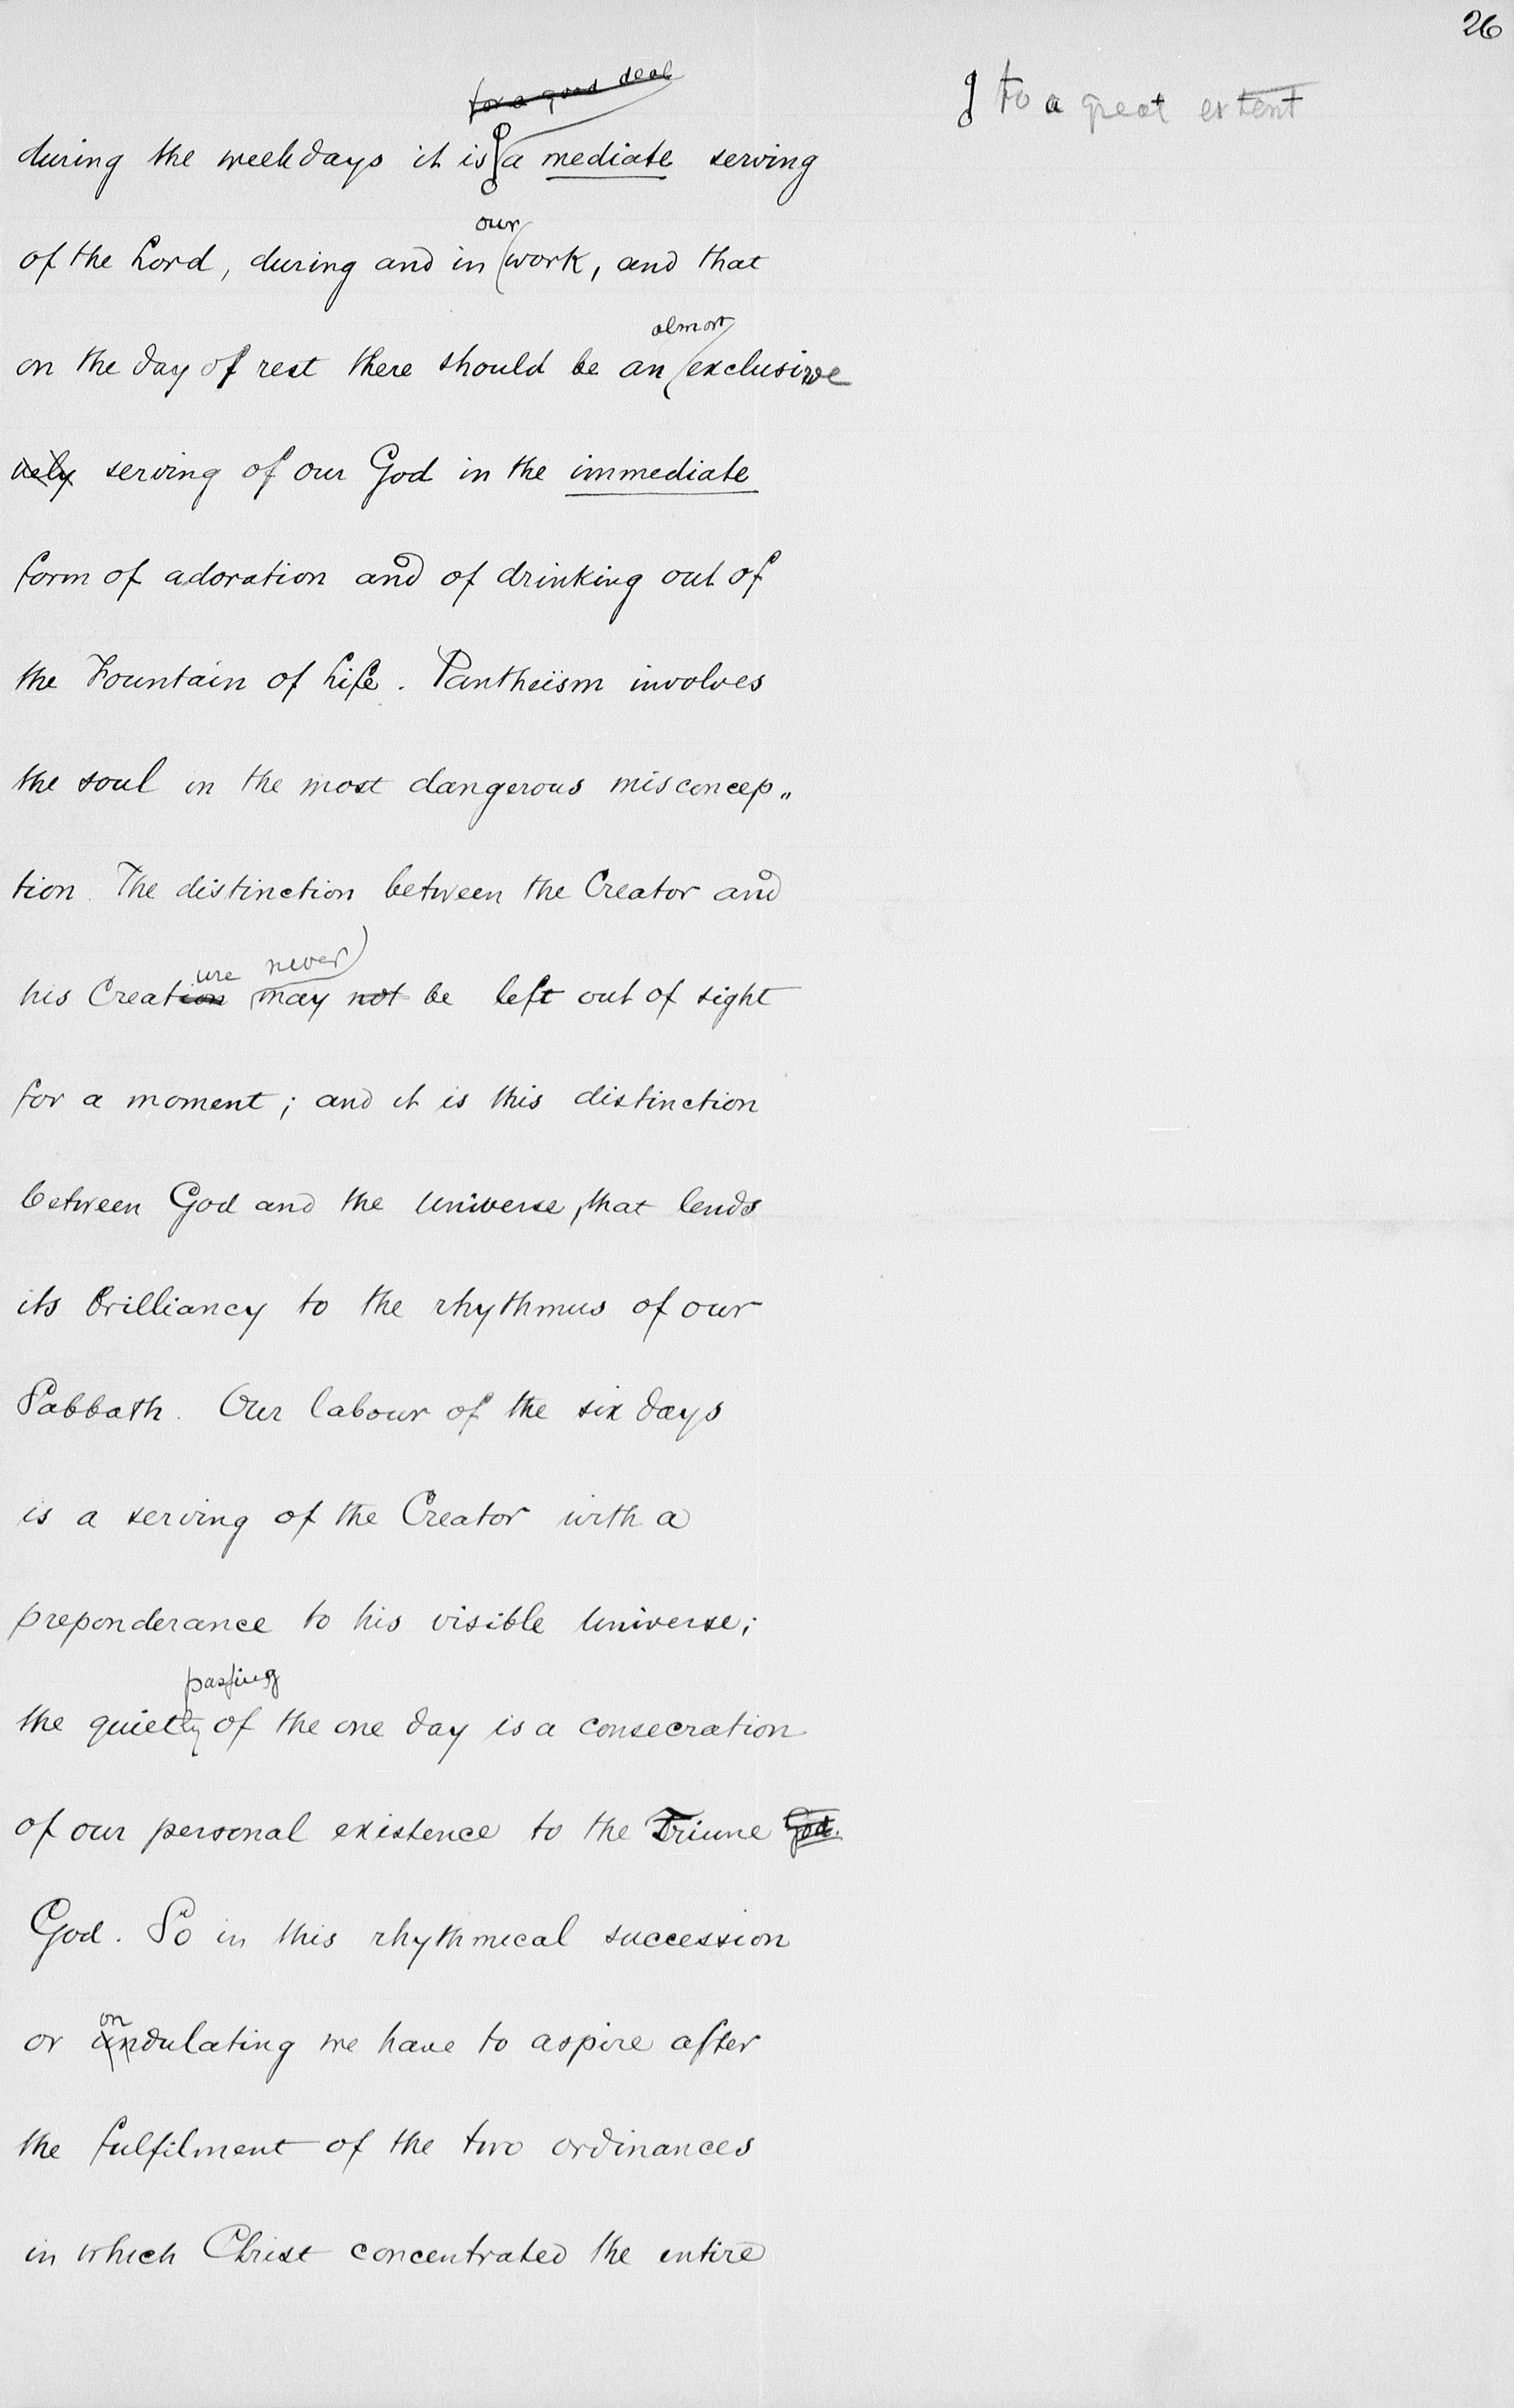 26
for a good deal
to a great extent
during the weekdays it is a mediate serving
our
of the Lord, during and in work, and that
almost
on the day of rest there should be an exclusive
vely serving of our God in the immediate
form of adoration and of drinking out of
the Fountain of Life. Pantheïsm involves
the soul in the most dangerous misconcep„
tion. The distinction between the Creator and
ure never
his Creation may not be left out of sight
for a moment; and it is this distinction
between God and the Universe, that lends
its brilliancy to the rhythmus of our
Sabbath. Our labour of the six days
is a serving of the Creator with a
preponderance to his visible Universe;
passing
the quietly of the one day is a consecration
of our personal existence to the Triune God.
God. So in this rhythmical succession
on
or andulating we have to aspire after
the fulfilment of the two ordinances
in which Christ concentrated the entire